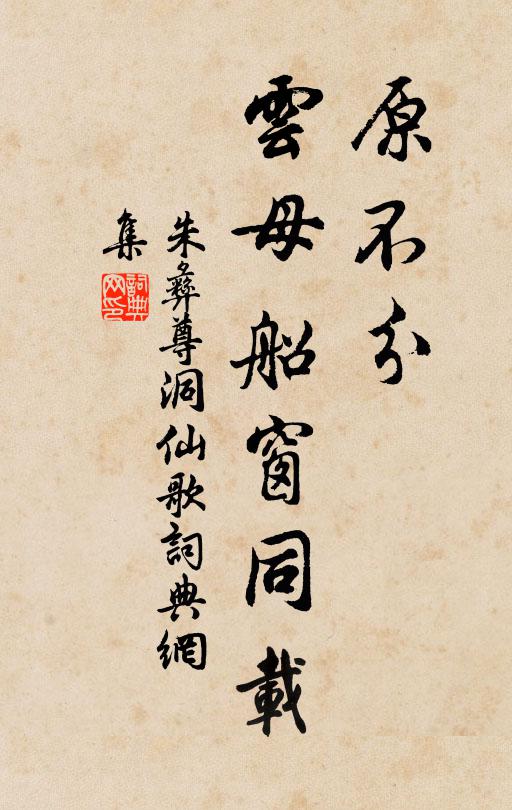 原不分
雲母船窗同載
朱彝尊洞仙歌詞典網
集
詞典
网印